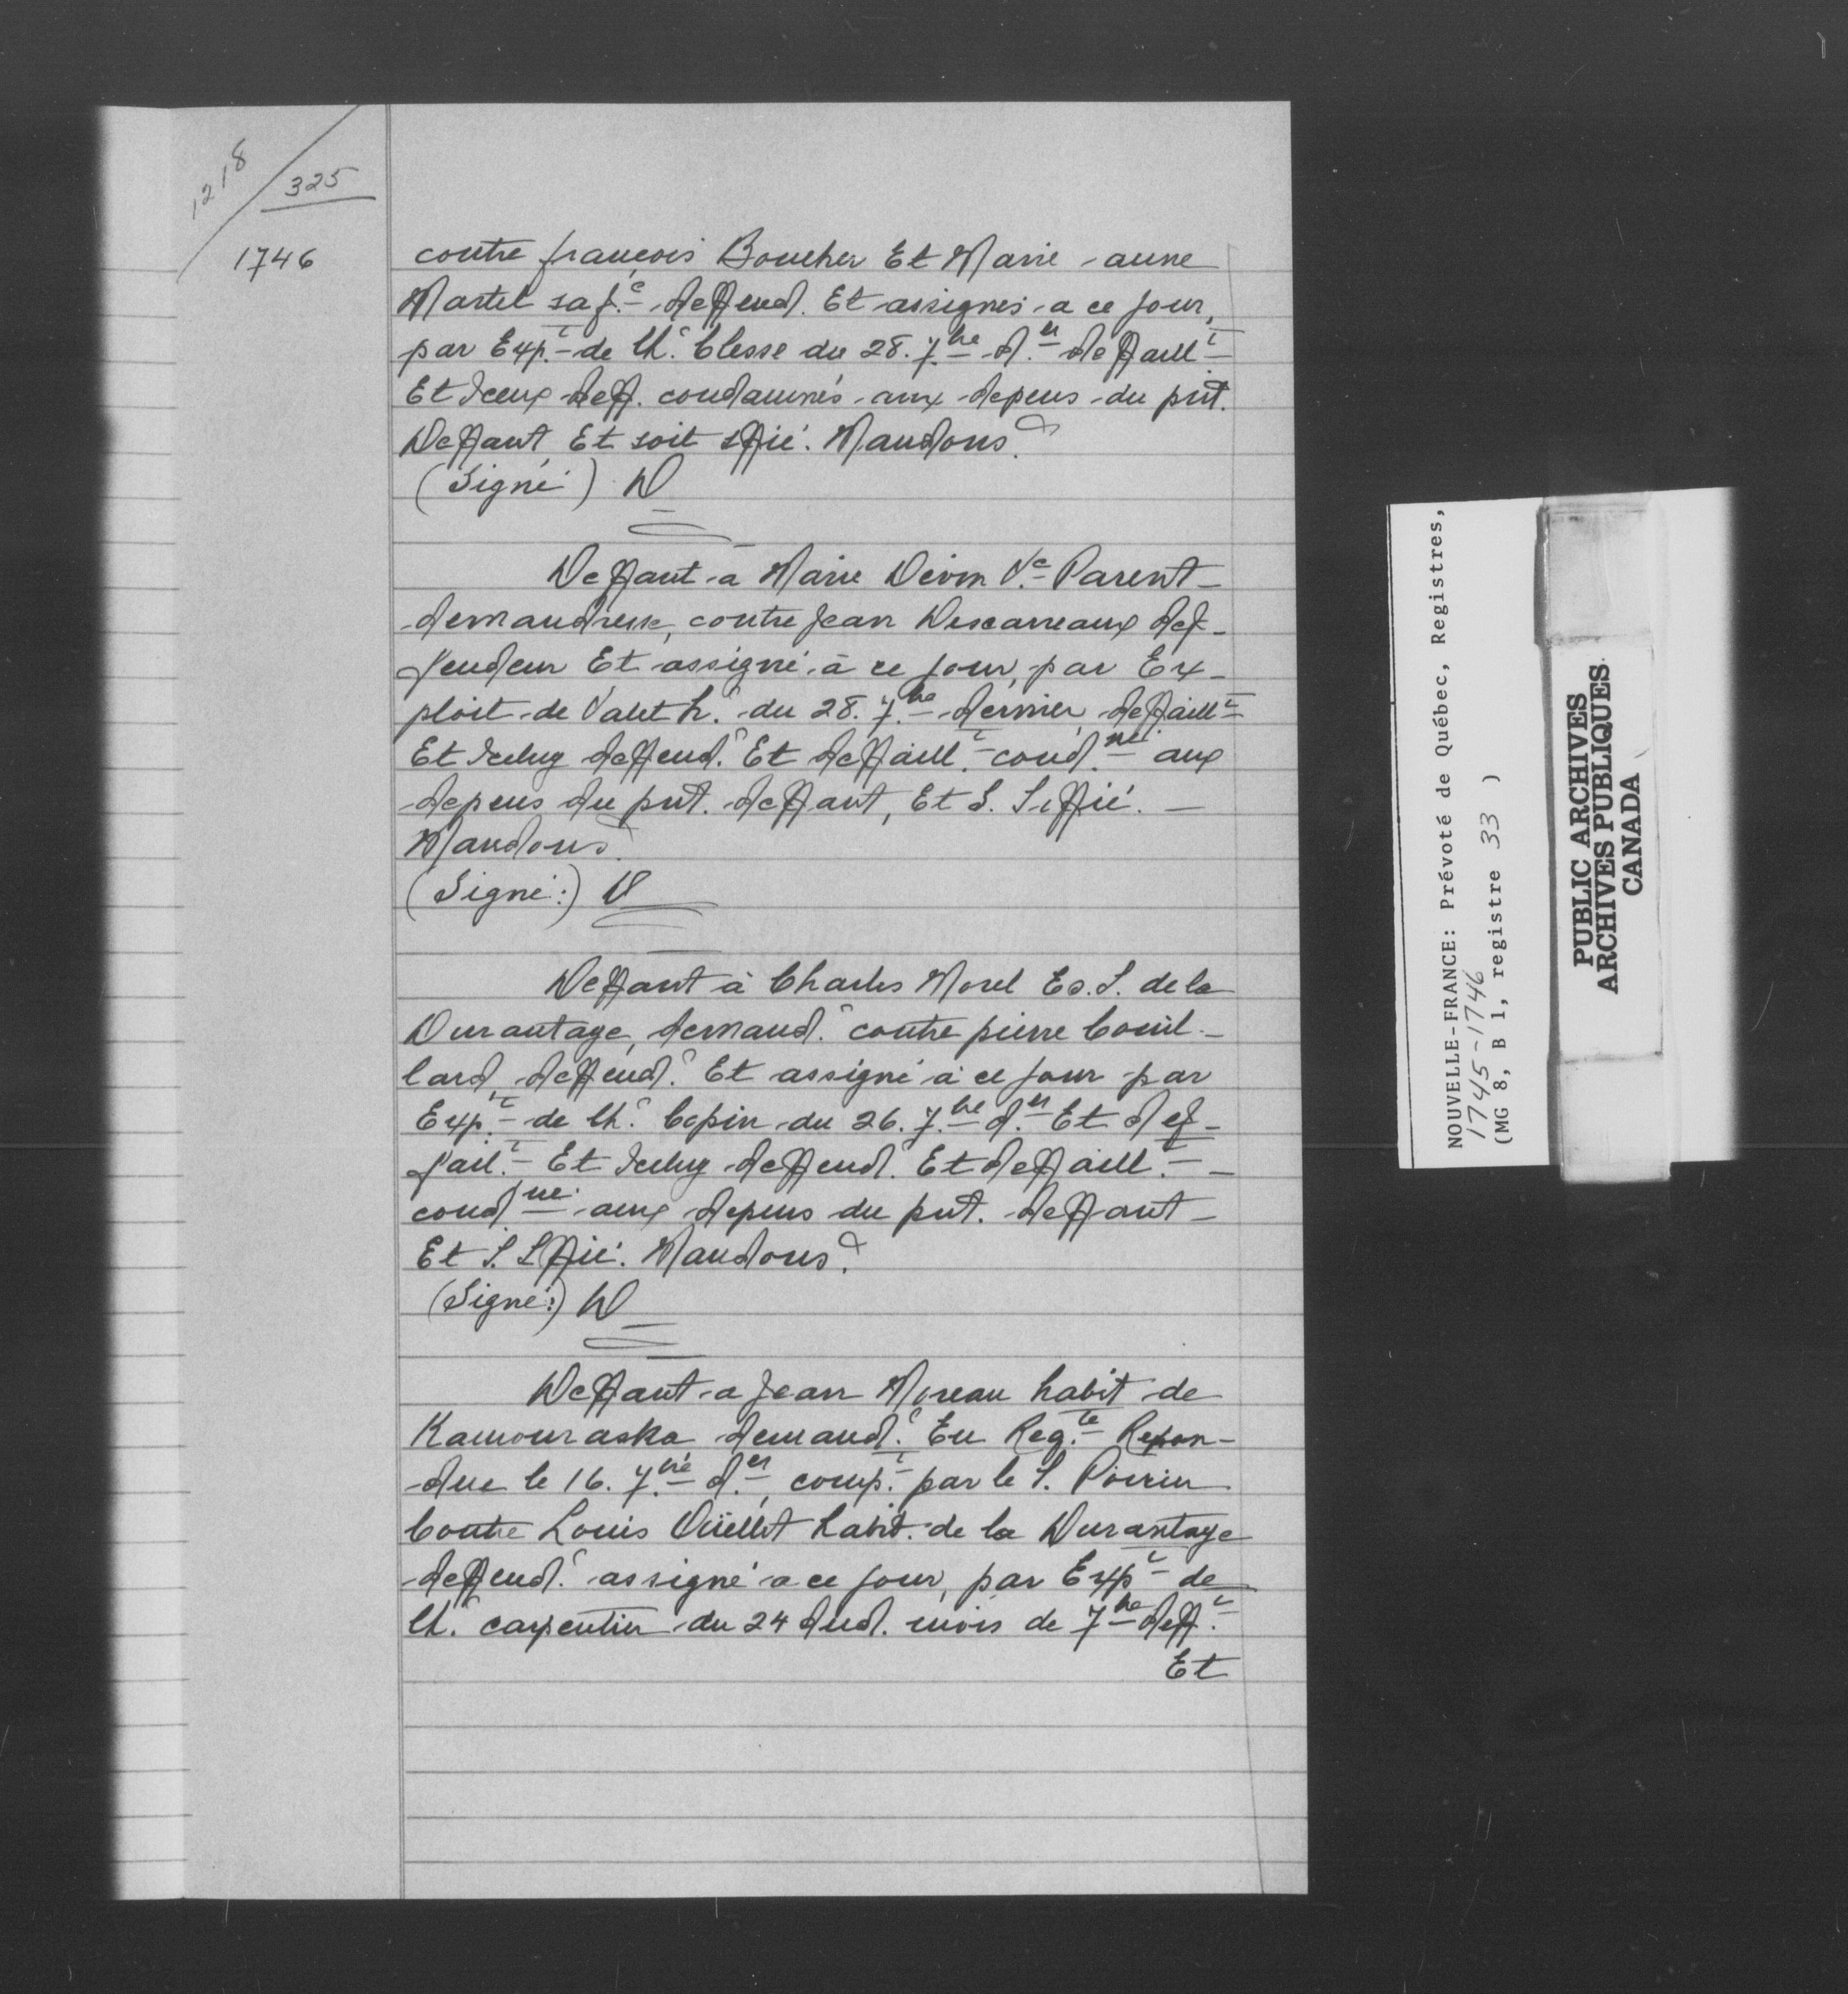 1218
325
1746
contre françois Boucher Et Marie-anne
Martel sa f.e deffend. Et assignés a ce jour,
par Exp.t de Ch.r Clesse du 28. 7.bre d.er deffaill.t
Et Iceux deff. condamnés aux depens du pnt.
Deffaut, Et soit sffié. Mandons.
(Signé) D
Deffaut a Marie Devin V.e Parent
demandresse, contre Jean Descarreaux def-
fendeur Et assigné à ce jour, par Ex-
ploit de Valet h.r du 28. 7.bre dernier, deffaill.t
Et Iceluy deffend.r Et deffaill.t cond.né aux
depens du pnt. deffaut, Et S. Siffié.
Mandons.
(Signé:) D
Deffaut à Charles Morel Es. S. de la
Durantage, demand.r contre pierre Couil-
lard, deffend.r Et assigné à ce jour par
Exp.t de Ch.r Copin du 26. 7.bre d.er Et def-
fail.t Et Iceluy deffend.r Et deffaill.t
cond.né aux depens du pnt. deffaut
Et S. Sffié. Mandons.
(Signé:) D
Deffaut a Jean Moreau habit de
Kamouraska demand.r En Reg.te Repon-
due le 16. 7.bre d.er, comp.t par le S. Poirier
Contre Louis Ouëllet habit. de la Durantage
deffend.r assigné a ce jour, par Exp.t de
Ch. carpentier du 24 dud. mois de 7.bre deff.t
Et
NOUVELLE-FRANCE: Prévoté de Québec, Registres,
1745-1746
(MG 8, B 1, registre 33 )
PUBLIC ARCHIVES
ARCHIVES PUBLIQUES
CANADA